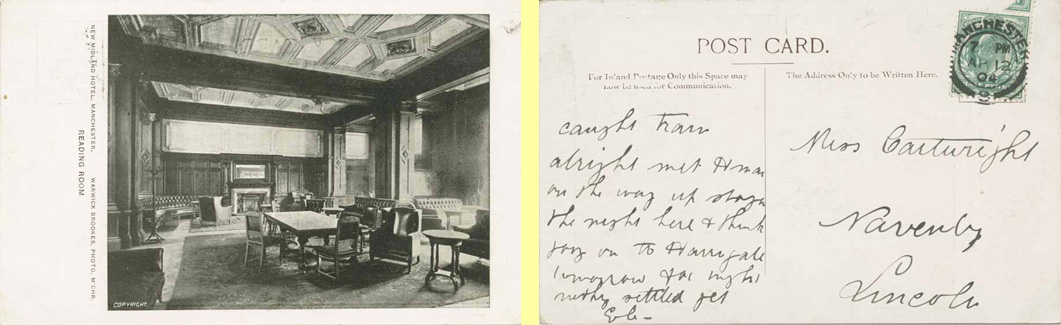 NEW MIDLAND HOTEL, MANCHESTER. WARWICK BROOKES, PHOTO, M'CHR.
READING ROOM
COPYRIGHT.
POST CARD.
For Inland Postage Only this Space may
now be used for Communication.
The Address Only to be Written Here.
MANCHESTER
7 PM
AP 12
04
caught train
alright met
on the way up
the night here & think
on to Harrogate
tomorrow for night
settled yet
Miss Cartwright
Navenby
Lincoln